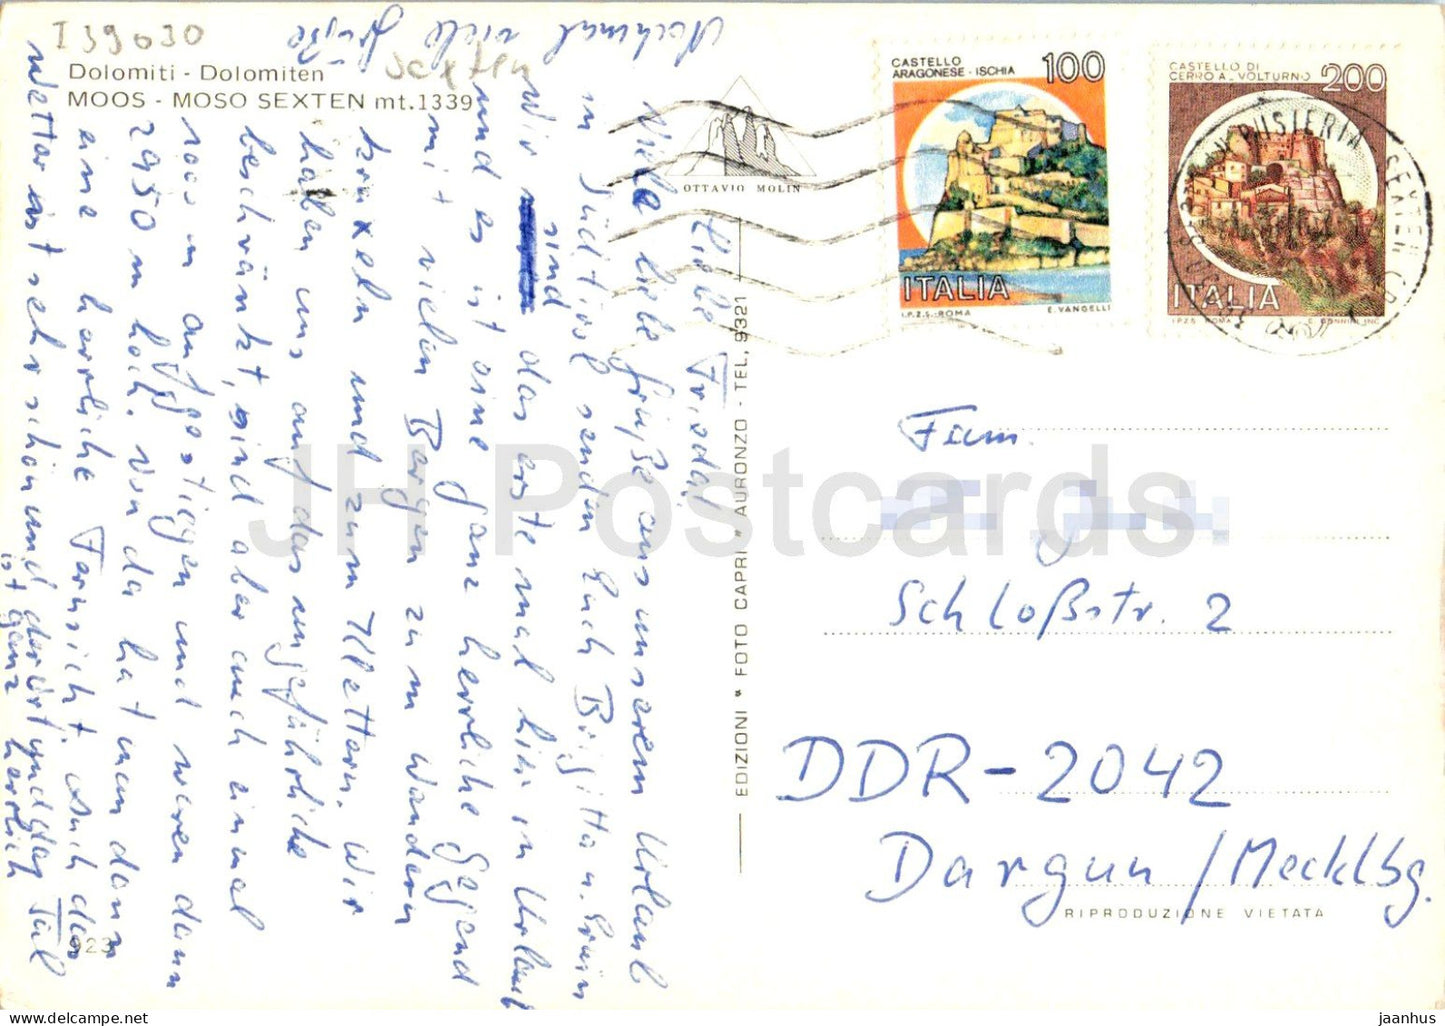 I39030
Sexten
Dolomiti - Dolomiten
MOOS - MOSO SEXTEN mt. 1339
OTTAVIO MOLIN
EDIZIONI * FOTO CAPRI * AURONZO - TEL. 9321
CASTELLO
ARAGONESE - ISCHIA
100
ITALIA
I.P.Z.S. - ROMA E. VANGELLI
CASTELLO DI
CERRO AL VOLTURNO
200
ITALIA
I.P.Z.S. ROMA E. DONNINI INC.
PUSTERIA SEXTEN
Liebe Frieda!
Viele liebe Grüße aus unserem Urlaub
in Südtirol senden Euch Brigitta u. Erwin
Wir sind das erste mal hier in Urlaub
und es ist eine ganz herrliche Gegend
mit vielen Bergen zum Wandern
kraxeln und zum Klettern. Wir
haben uns auf das ungefährliche
beschränkt, sind aber auch einmal
100 m aufgestiegen und waren dann
2950 m hoch. Von da hat man dann
eine herrliche Fernsicht. Auch das
Wetter ist sehr schön und der Ort und das Tal
ist ganz herrlich
Nochmal viele Grüße
Fam.
Schloßstr. 2
DDR - 2042
Dargun / Mecklbg.
RIPRODUZIONE VIETATA
923
JH Postcards
jaanhus